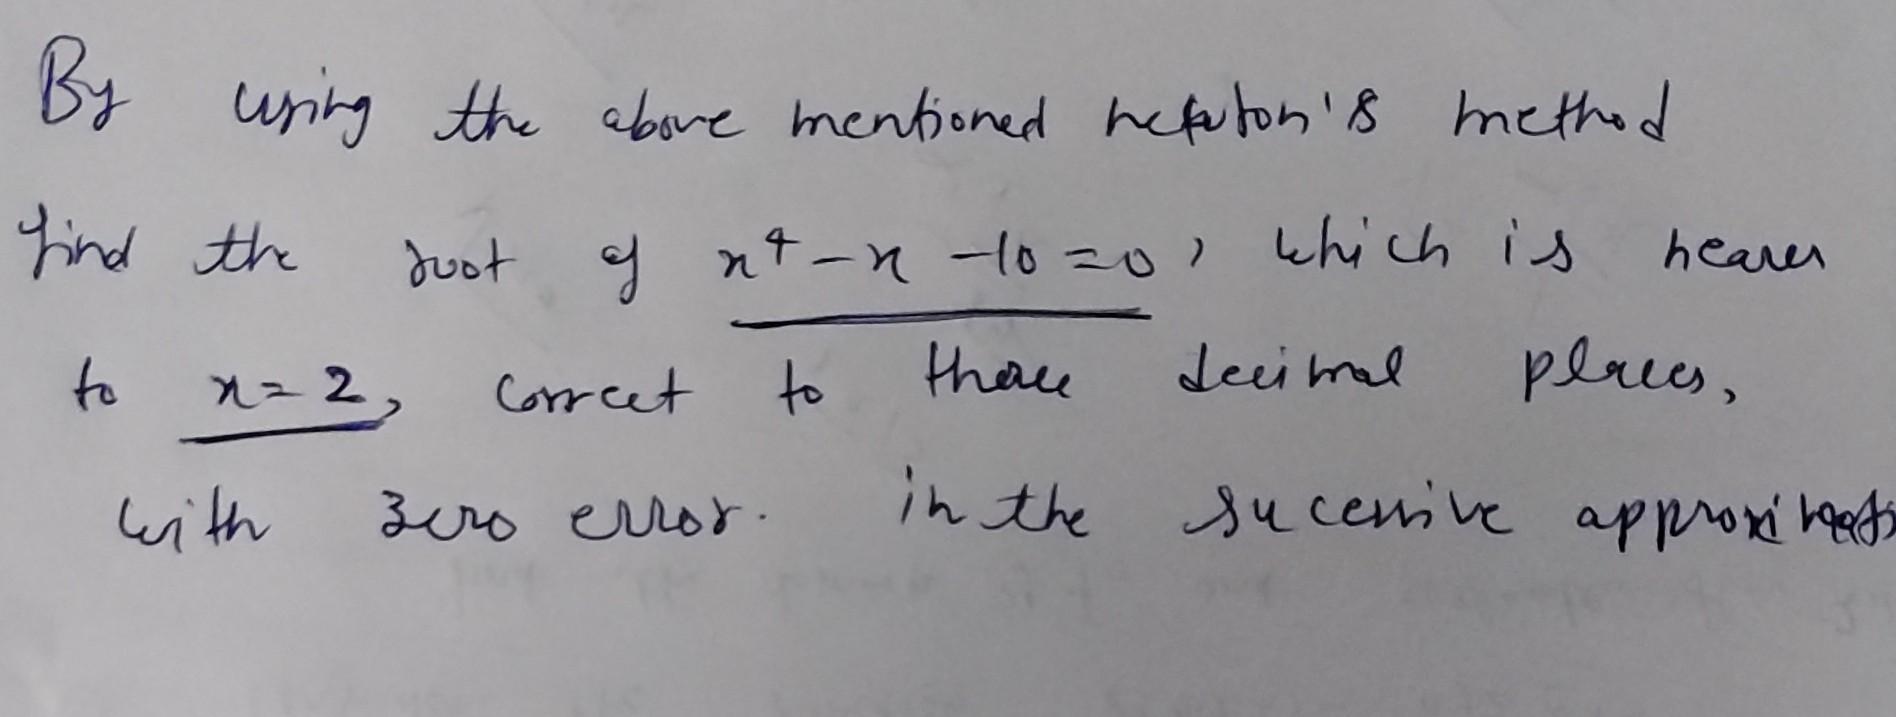 By using the above mentioned newton's method
find the root of x⁴ - x - 10 = 0, which is nearer
to x = 2, correct to three decimal places,
with zero error. in the sucessive